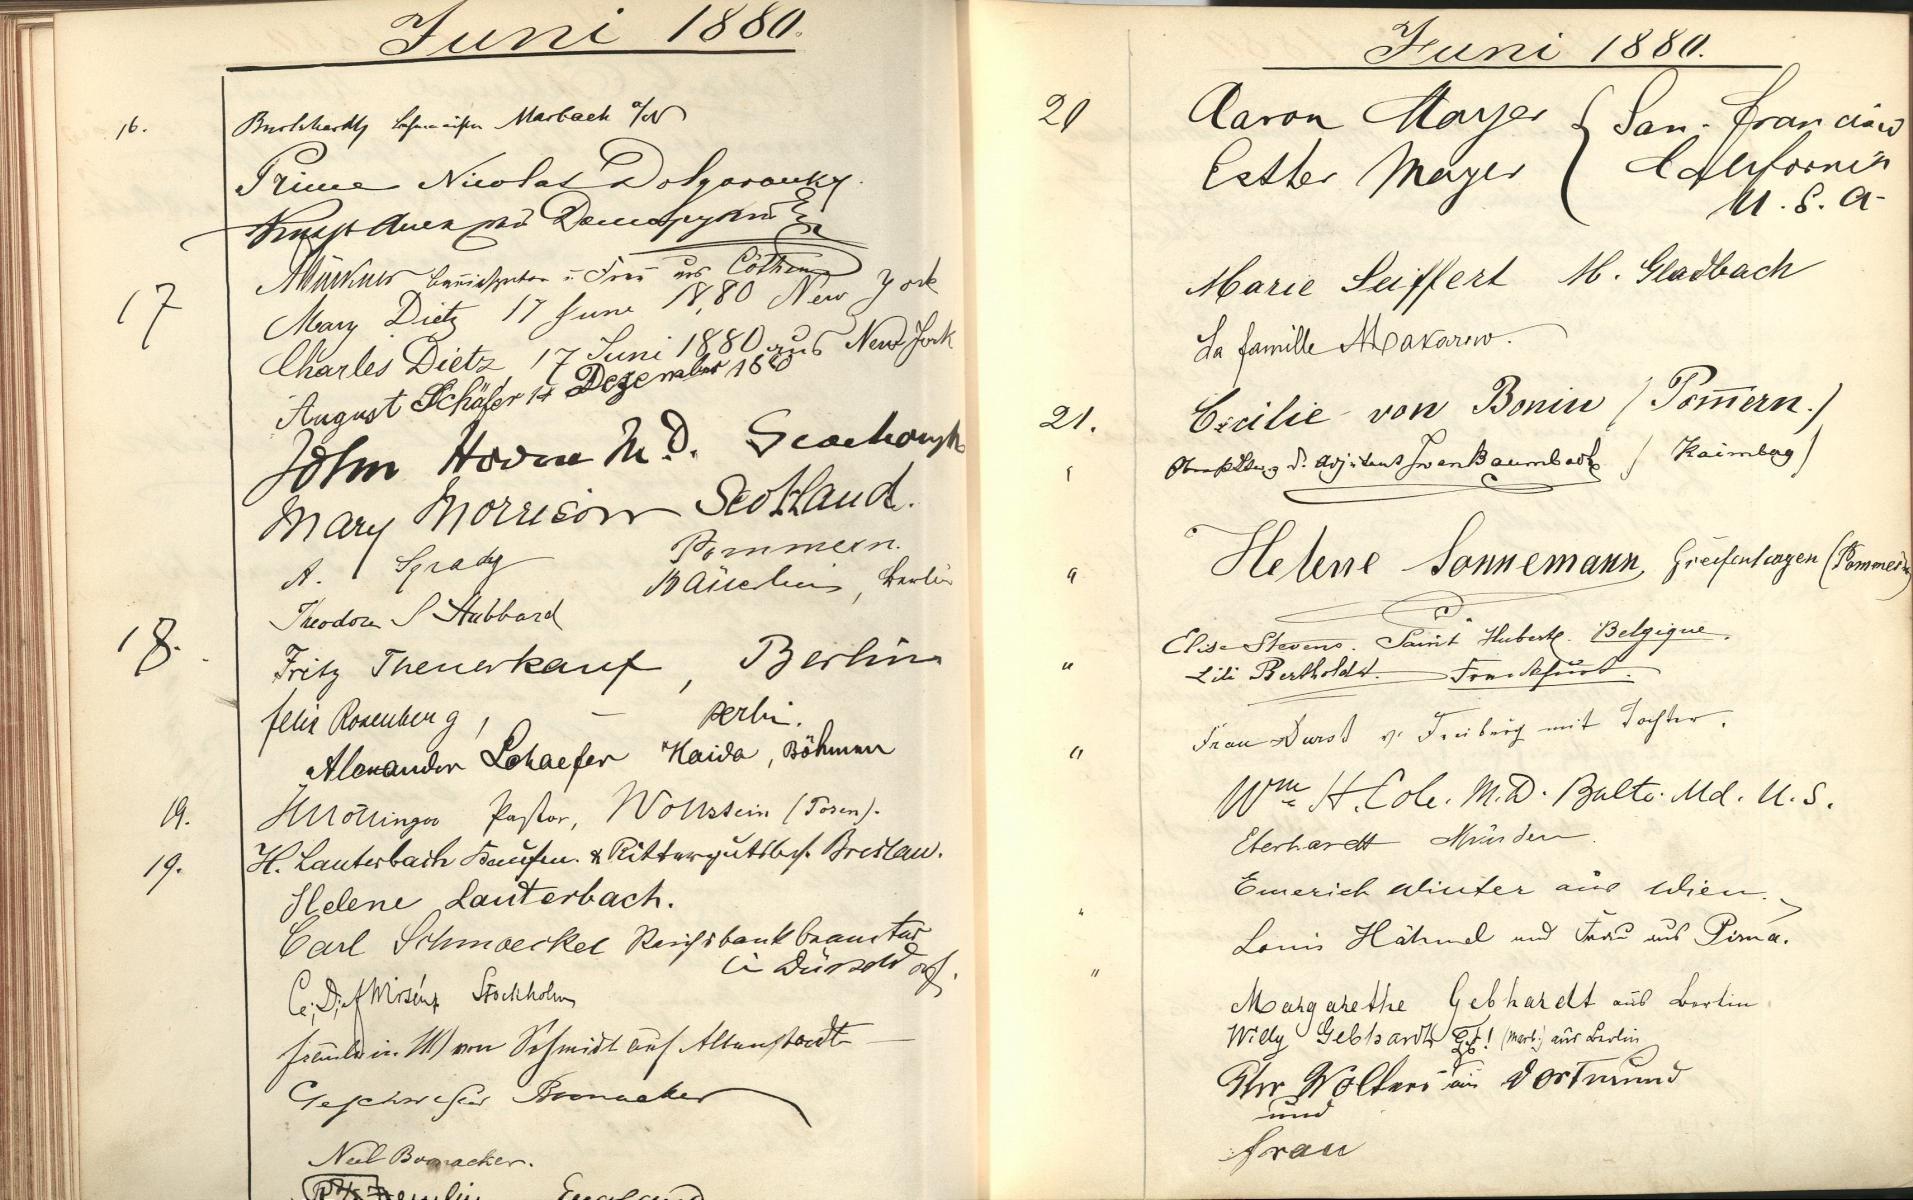 Juni 1880.
16.
Burkhardt Marbach a/N
Prince Nicolas Dolgorouky.
u. Frau aus Cöthen
17
Mary Dietz 17 June 1880 New York
Charles Dietz, 17 Juni 1880 aus New York
August Schäfer 14 Dezember 1880
John Horne M.D.
Mary Morrison Scotland.
A. Pommern.
Theodore S Hubbard
Berlin
18.
Fritz Theuerkauf, Berlin
Felix Rosenberg, — Berlin.
Alexander Schaefer Haida, Böhmen
19.
Pastor, Wollstein (Posen).
19.
H. Lauterbach Kaufm. & Rittergutsbes. Breslau.
Helene Lauterbach.
Carl Schmoeckel Reichsbankbeamter
in Düsseldorf.
Stockholm
Fräulein von Schmidt auf Altenstadt
Geschwister Bomacker
Neel Bomacker.
England
Juni 1880.
20
Aaron Mayer San. Francisco
Esther Mayer California
U. S. A-
Marie Seiffert M. Gladbach
La famille Makarow.
21.
Cecilie von Bonin (Pommern.)
d. Adjutant Iwan Baumbach
"
Helene Sonnemann, Greifenhagen (Pommern)
"
Elise Stevens. Saint Hubert. Belgique.
"
Lili Bertholdt. Frankfurt.
Frau Durst v. Freiberg mit Tochter.
"
Wm H. Cole. M.D. Balto. Md. U. S.
Eberhardt Münden.
Emerich Winter aus Wien.
Louis Hähnel und Frau aus Pirna.
"
Margarethe Gebhardt aus Berlin
Willy Gebhardt aus Berlin
Wolters aus Dortmund
und
Frau